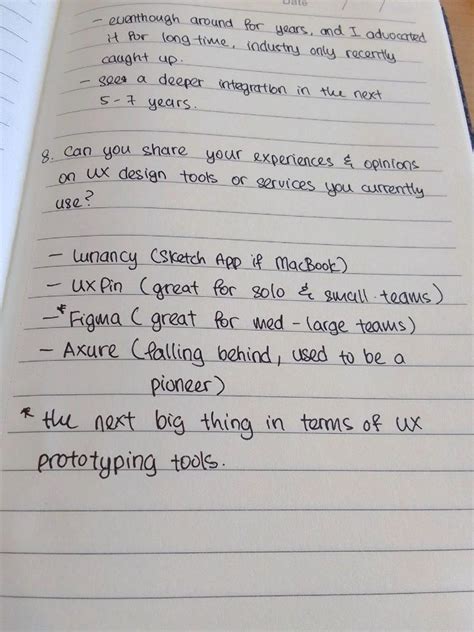 Date / /
- eventhough around for years, and I advocated
it for long time, industry only recently
caught up.
- sees a deeper integration in the next
5-7 years.
8. Can you share your experiences & opinions
on UX design tools or services you currently
use?
- Lunancy (Sketch App if MacBook)
- UXPin (great for solo & small teams)
-* Figma (great for med-large teams)
- Axure (falling behind, used to be a
pioneer)
* the next big thing in terms of UX
prototyping tools.